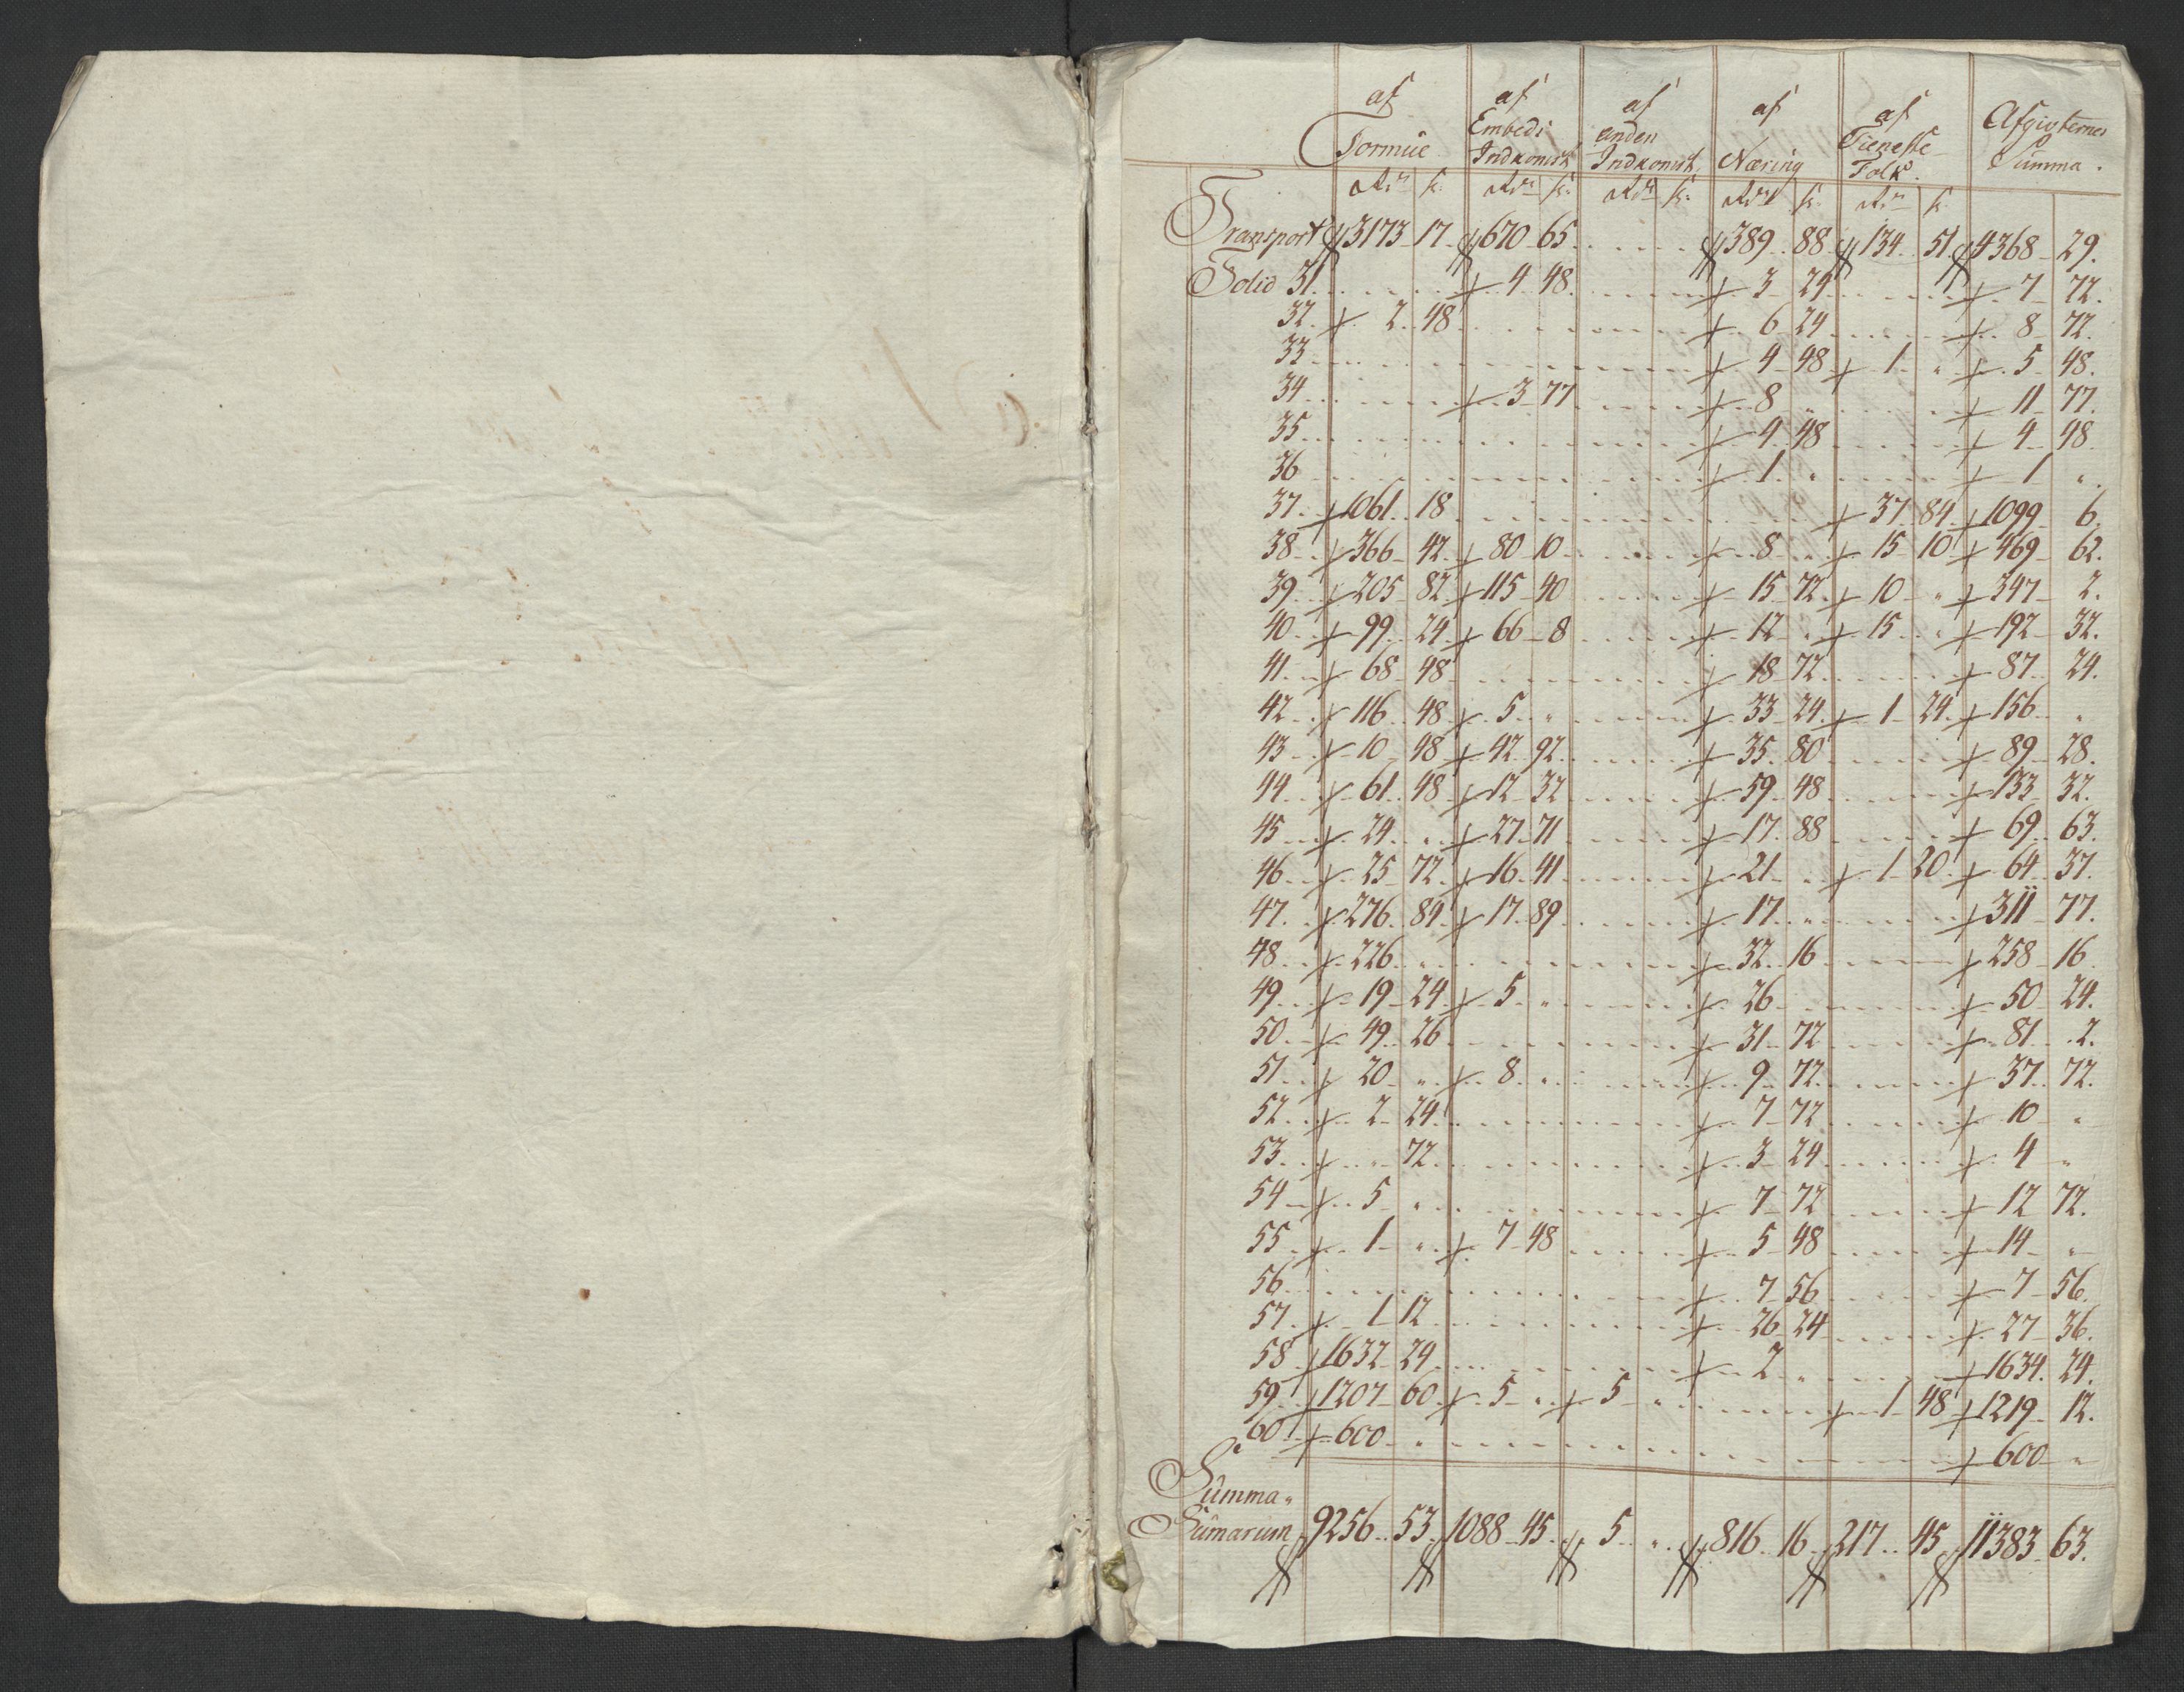 af Formue | af Embeds Indkomst | af anden Indkomst | af Næring | af Tieneste Folk | Afgivternes Summa.
Rdr ſk: | Rdr ſk: | Rdr ſk: | Rdr ſk: | Rdr ſk
Transport | 3173 17 | 670 65 | | 389 88 | 134 51 | 4368 29.
Folio 31 | | 4 48 | | 3 24 | | 7 72.
32 | 2 48 | | | 6 24 | | 8 72.
33 | | | | 4 48 | 1 " | 5 48.
34 | | 3 77 | | 8 " | | 11 77.
35 | | | | 4 48 | | 4 48
36 | | | | 1 " | | 1 "
37 | 1061 18 | | | | 37 84 | 1099 6.
38 | 366 42 | 80 10 | | 8 | 15 10 | 469 62.
39 | 205 82 | 115 40 | | 15 72 | 10 " | 347 2.
40 | 99 24 | 66 8 | | 12 " | 15 " | 192 32.
41 | 68 48 | | | 18 72 | | 87 24.
42 | 116 48 | 5 " | | 33 24 | 1 24 | 156 "
43 | 10 48 | 42 92 | | 35 80 | | 89 28.
44 | 61 48 | 12 32 | | 59 48 | | 133 32.
45 | 24 " | 27 71 | | 17 88 | | 69 63.
46 | 25 72 | 16 41 | | 21 " | 1 20 | 64 37.
47 | 276 84 | 17 89 | | 17 " | | 311 77.
48 | 226 " | | | 32 16 | | 258 16
49 | 19 24 | 5 " | | 26 | | 50 24.
50 | 49 26 | | | 31 72 | | 81 2.
51 | 20 " | 8 " | | 9 72 | | 37 72.
52 | 2 24 | | | 7 72 | | 10 "
53 | " 72 | | | 3 24 | | 4 "
54 | 5 " | | | 7 72 | | 12 72.
55 | 1 " | 7 48 | | 5 48 | | 14 "
56 | | | | 7 56 | | 7 56.
57 | 1 12 | | | 26 24 | | 27 36.
58 | 1632 24 | | | 2 " | | 1634 24.
59 | 1207 60 | 5 " | 5 " | | 1 48 | 1219 12.
60 | 600 " | | | | | 600 "
Summa
Sumarum | 9256 53 | 1088 45 | 5 " | 816 16 | 217 45 | 11383 63.